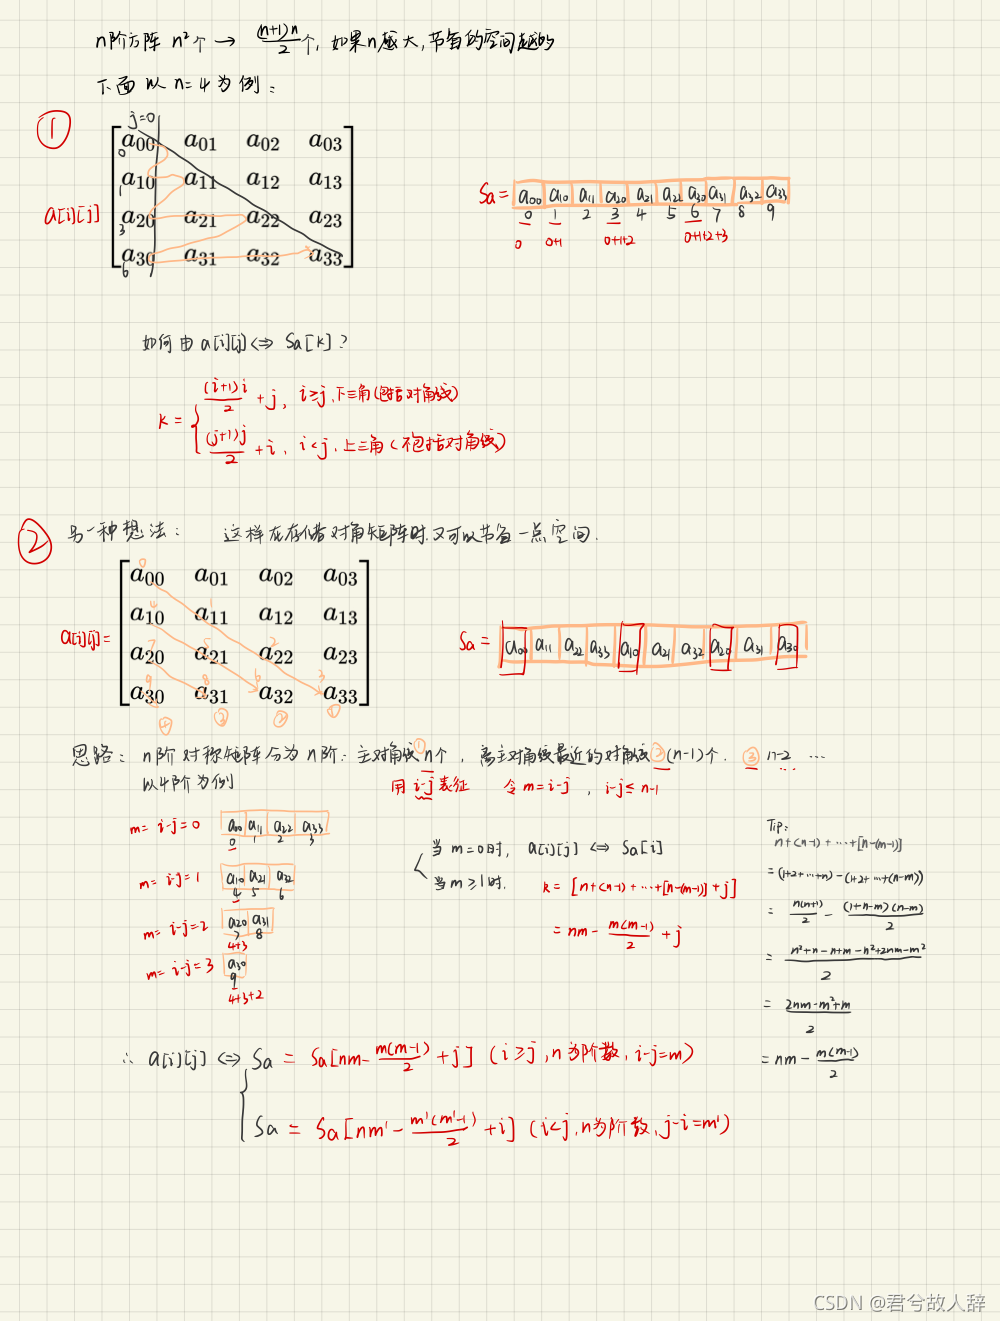 n阶方阵 n²个 → (n+1)n/2 个, 如果n越大,节省的空间越的
下面以n=4为例:
①
j=0
a[i][j]
a00 a01 a02 a03
a10 a11 a12 a13
a20 a21 a22 a23
a30 a31 a32 a33
0
1
3
6
Sa = a00 a10 a11 a20 a21 a22 a30 a31 a32 a33
0 1 2 3 4 5 6 7 8 9
0 0+1 0+1+2 0+1+2+3
如何由a[i][j] <=> Sa[k]?
k = { (i+1)i/2 + j, i≥j, 下三角(包括对角线)
(j+1)j/2 + i, i<j, 上三角(不包括对角线)
② 另一种想法: 这样在存储对角矩阵时又可以节省一点空间.
a[i][j]=
a00 a01 a02 a03
a10 a11 a12 a13
a20 a21 a22 a23
a30 a31 a32 a33
0 1 2 3
4 5 6
7 8
9
④ ③ ② ①
Sa = a00 a11 a22 a33 a10 a21 a32 a20 a31 a30
思路: n阶对称矩阵分为n阶: 主对角线①n个, 离主对角线最近的对角线②(n-1)个. ③ n-2 ...
以4阶为例
用 i-j 表征 令m=i-j , i-j≤n-1
m= i-j=0 a00 a11 a22 a33
0 1 2 3
m= i-j=1 a10 a21 a32
4 5 6
m= i-j=2 a20 a31
7 8
4+3
m= i-j=3 a30
9
4+3+2
当m=0时, a[i][j] <=> Sa[i]
当m≥1时. k= [n+(n-1)+...+[n-(m-1)]+j]
= nm - m(m-1)/2 + j
Tip:
n+(n-1)+...+[n-(m-1)]
=(1+2+...+n)-(1+2+...+(n-m))
= n(n+1)/2 - (1+n-m)(n-m)/2
= n²+n-n+m-n²+2nm-m²/2
= 2nm-m²+m/2
= nm - m(m-1)/2
∴ a[i][j] <=> { Sa = Sa[nm - m(m-1)/2 + j] (i≥j, n为阶数, i-j=m)
Sa = Sa[nm' - m'(m'-1)/2 + i] (i<j, n为阶数, j-i=m')
CSDN @君兮故人辞